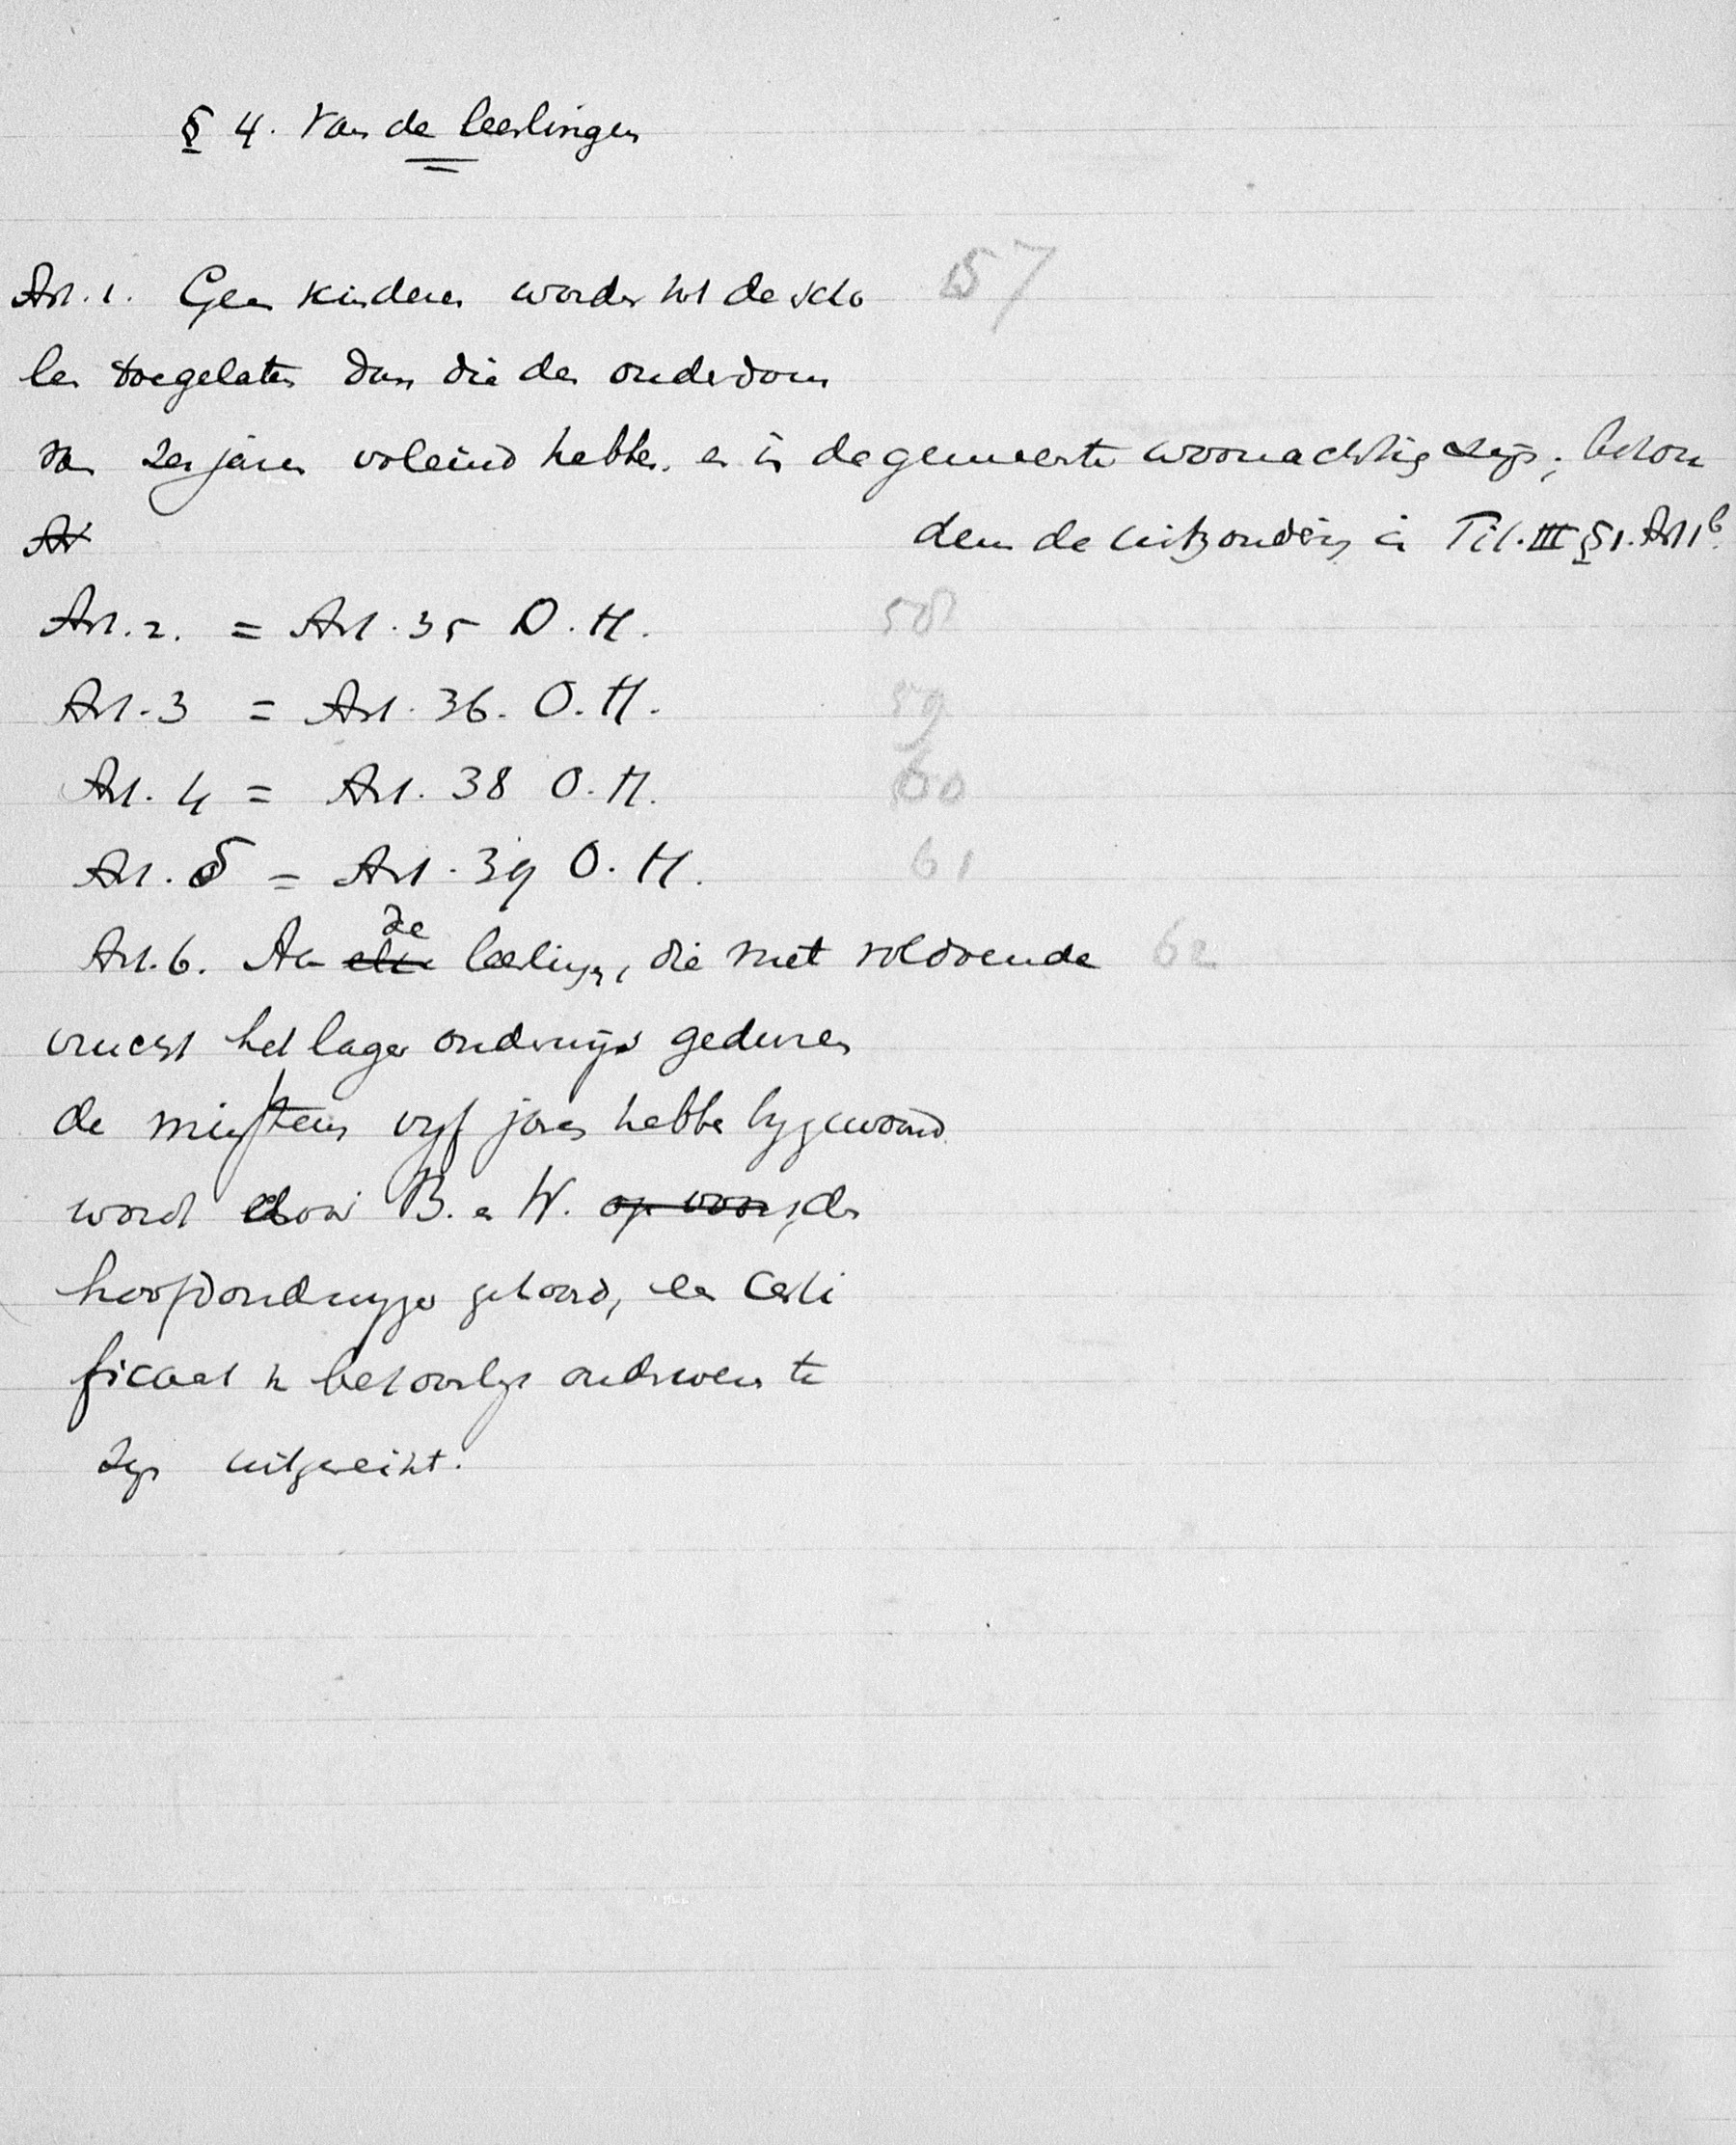 § 4. Van de leerlingen
Art. 1. Geen kinderen worden tot de scho 57
len toegelaten dan die den ouderdom
van zes jaren voleind hebben. en in de gemeente woonachtig zijn; behou
Ar dens de uitzondering in Tit. III § 1. Art 1 b.
Art. 2. = Art. 35 O. H. 58
Art. 3 = Art. 36. O. H. 59
Art. 4 = Art. 38 O. H. 60
Art. 5 = Art. 39 O. H. 61
de
Art. 6. Aan elke leerlingen, die met voldoende 62
vrucht het lager onderwijs geduren
de minstens vyf jaren hebben bygewoond
wordt door B. en W. op voor, den
hoofdonderwyzer gehoord, een Certi
ficaat van behoorlyk onderwezen te
zyn uitgereikt.